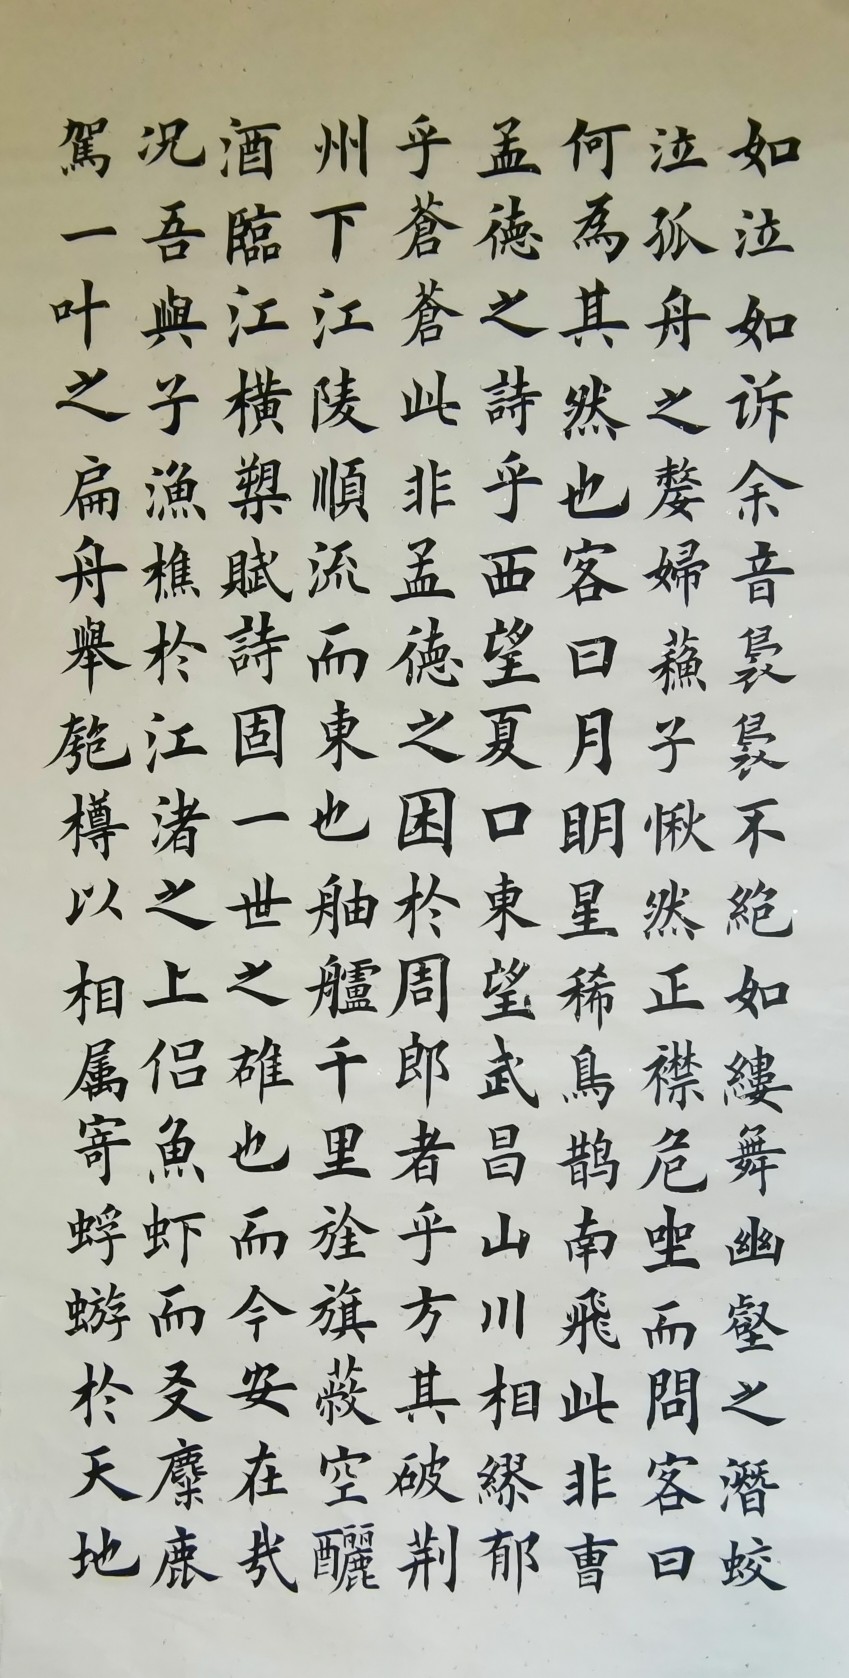 如泣如诉余音袅袅不絶如縷舞幽壑之潛蛟
泣孤舟之嫠婦蘓子愀然正襟危坐而問客曰
何為其然也客曰月明星稀烏鹊南飛此非曹
孟德之詩乎西望夏口東望武昌山川相繆郁
乎蒼蒼此非孟德之困於周郎者乎方其破荆
州下江陵順流而東也舳艫千里旌旗蔽空釃
酒臨江横槊賦詩固一世之雄也而今安在哉
况吾與子漁樵於江渚之上侣魚虾而友麋鹿
駕一叶之扁舟舉匏樽以相属寄蜉蝣於天地